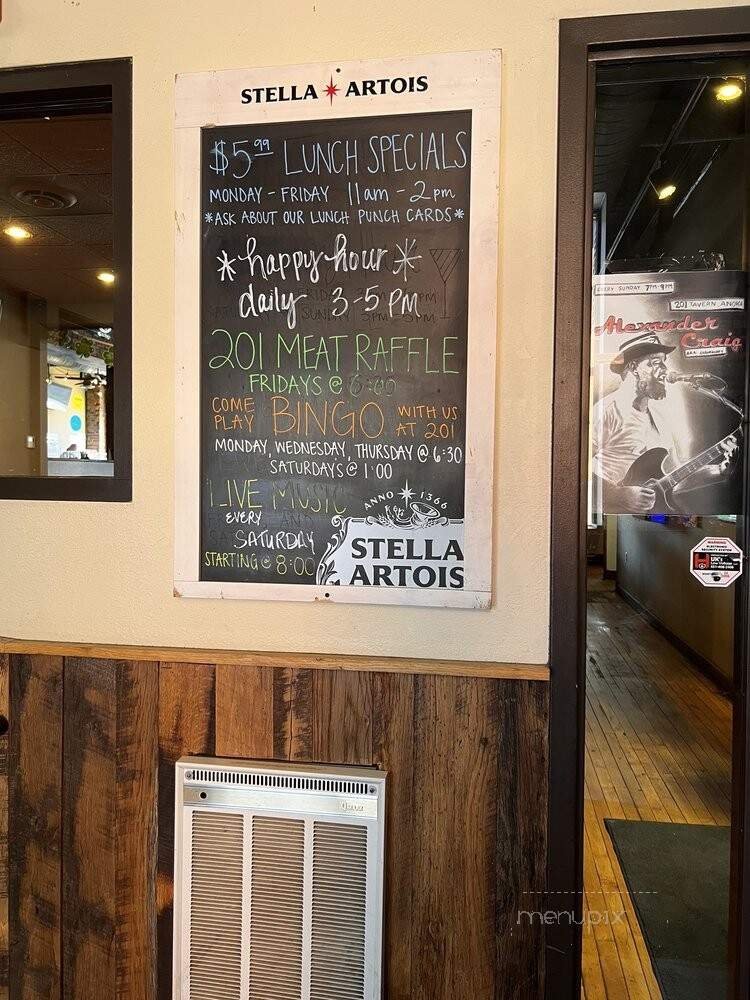 STELLA ARTOIS
$5.99 LUNCH SPECIALS
MONDAY - FRIDAY 11am - 2pm
*ASK ABOUT OUR LUNCH PUNCH CARDS*
*happy hour*
daily 3-5 pm
201 MEAT RAFFLE
FRIDAYS @ 6:00
COME PLAY BINGO WITH US AT 201
MONDAY, WEDNESDAY, THURSDAY @ 6:30
SATURDAYS @ 1:00
LIVE MUSIC
EVERY
SATURDAY
STARTING @ 8:00
ANNO 1366
STELLA
ARTOIS
EVERY SUNDAY 7PM-9PM
201 TAVERN ANOKA
Alexander
Craig
WARNING
menupix